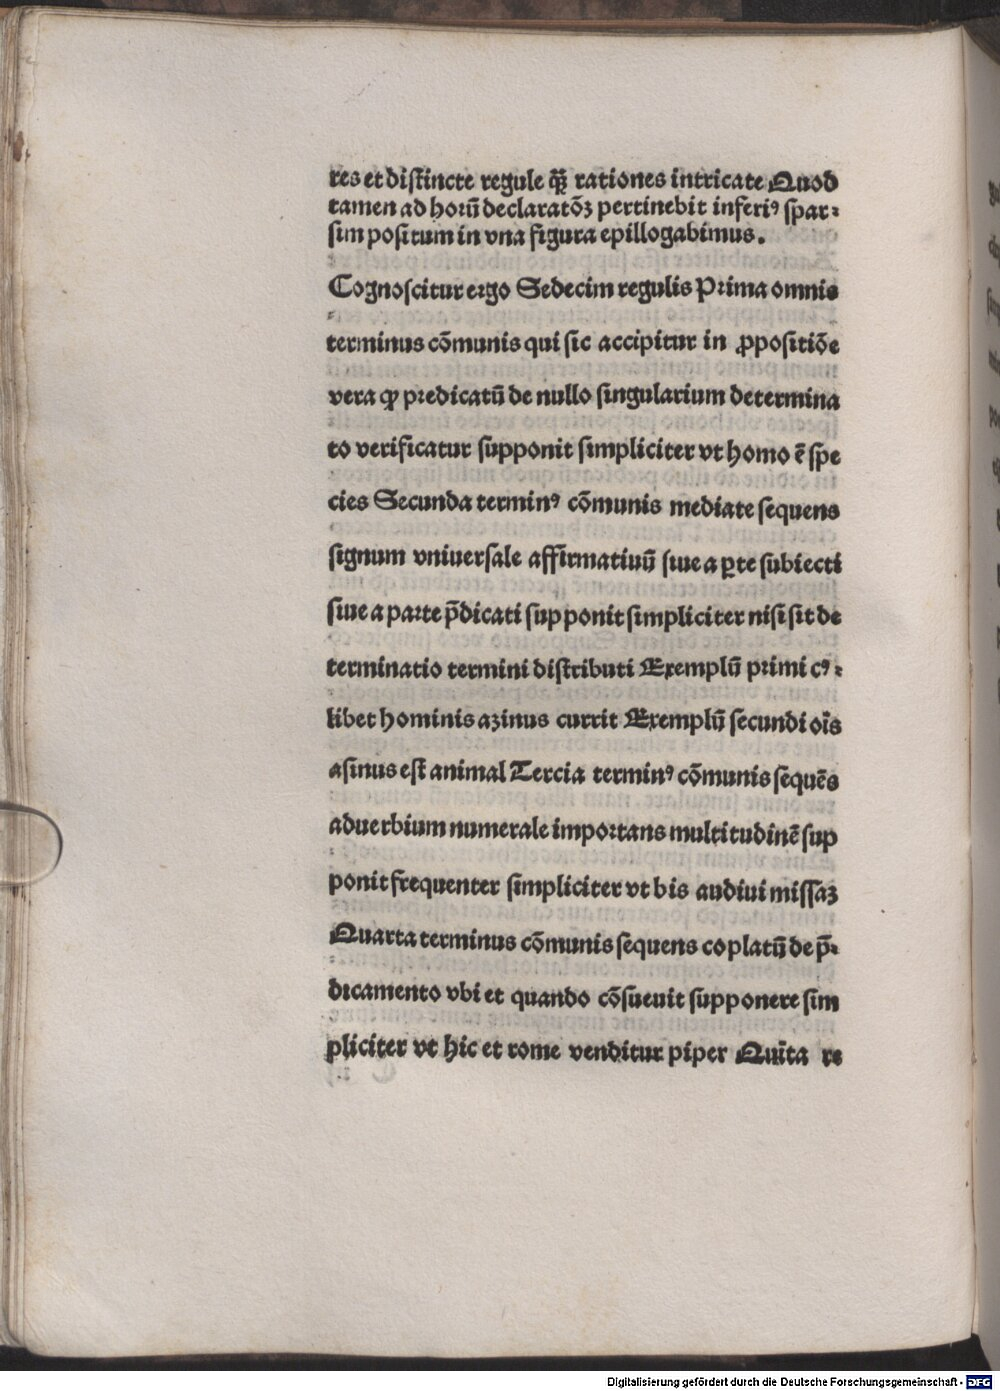 res et distincte regule qꝫ̄ rationes intricate Quod
tamen ad horū declaratōꝫ pertinebit inferiꝰ spar⸗
sim positum in vna figura epillogabimus.
Cognoscitur ergo Sedecim regulis Prima omnis
terminus cōmunis qui sic accipitur in ꝓpositiōe
vera ꝙ predicatū de nullo singularium determina
to verificatur supponit simpliciter vt homo ē spe
cies Secunda terminꝰ cōmunis mediate sequens
signum vniuersale affirmatiuū siue a ꝑte subiecti
siue a parte p̄dicati supponit simpliciter nisi sit de
terminatio termini distributi Exemplū primi cꝰ⸗
libet hominis azinus currit Exemplū secundi oīs
asinus est animal Tercia terminꝰ cōmunis sequēs
aduerbium numerale importans multitudinē sup
ponit frequenter simpliciter vt bis audiui missaꝫ
Quarta terminus cōmunis sequens coplatū de p̄⸗
dicamento vbi et quando cōsueuit supponere sim
pliciter vt hic et rome venditur piper Quīta re
Digitalisierung gefördert durch die Deutsche Forschungsgemeinschaft - DFG